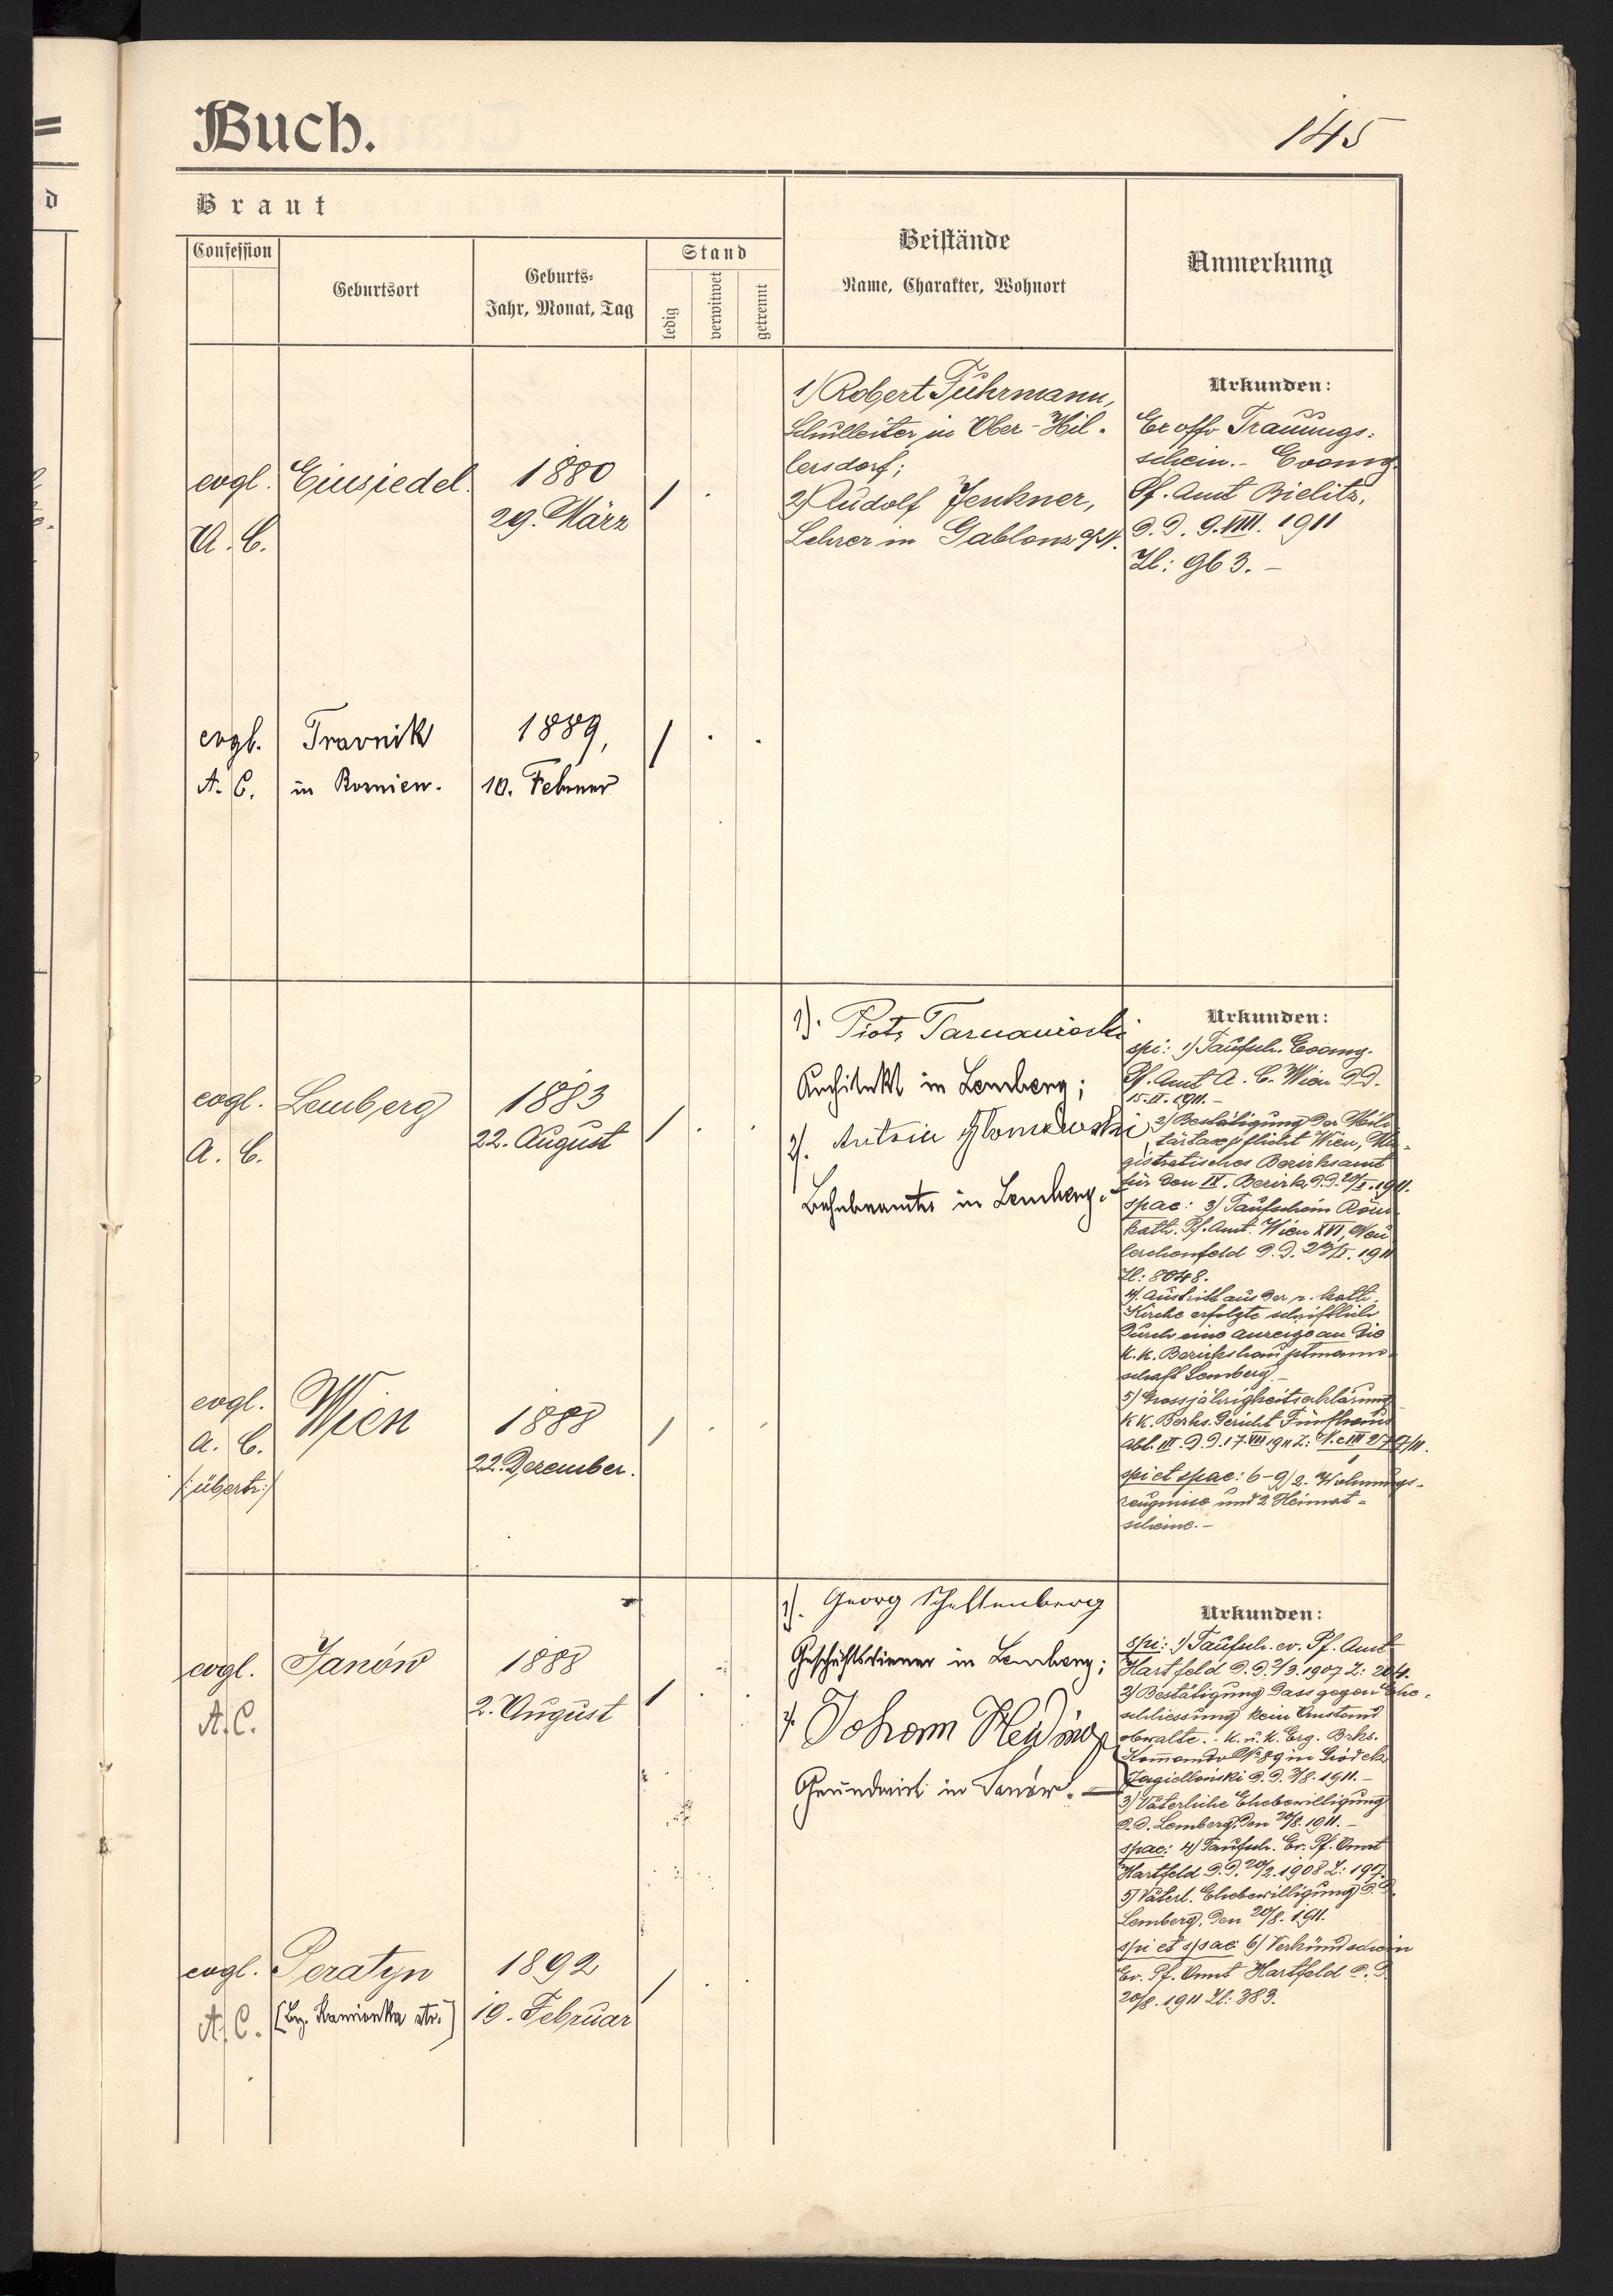 Buch.
145
Braut
Confession
Geburtsort
Geburts-
Jahr, Monat, Tag
Stand
ledig
verwitwet
getrennt
Beistände
Name, Charakter, Wohnort
Anmerkung
evgl.
A. C.
Einsiedel.
1880
29. März
1) Robert Fuhrmann,
Schulleiter in Ober-Hil-
lersdorf;
2) Rudolf Jenkner,
Lehrer in Gablonz a/N.
Urkunden:
Ex offo Trauungs-
schein.- Evang.
Pf. Amt Bielitz,
d. d. 9. VIII. 1911
Zl: 963. –
evgl.
A. C.
Travnik
in Bosnien.
1889,
10. Februar
evgl.
A. C.
Lemberg
1883
22. August
1). Piotr Tarnawiecki
Architekt in Lemberg;
2). Antoni
Bahnbeamter in Lemberg.
Urkunden:
spi: 1) Taufsch. Evang.
Pf. Amt A. C. Wien d. d.
15. II. 1911.-
2) Bestätigung der Mili-
tärtaxpflicht Wien, Ma-
gistratisches Bezirksamt
für den IX. Bezirk d. d. 1911.
spae: 3) Taufschein Röm.
kath. Pf. Amt. Wien XVI, Neu
lerchenfeld d. d. 1911
Zl: 8048.
4) Austritt aus der r. kath.
Kirche erfolgte schriftlich
durch eine Anzeige an die
k. k. Bezirkshauptmann-
schaft Lemberg.-
5) Grossjährigkeitserklärung
k. k. Bezks. Gericht Fünfhaus
Abt. III. d. d. 17. VIII 1911 Z:
spi et spae: 6-9) 2. Wohnungs-
zeugnisse und 2 Heimat-
scheine.-
evgl.
A. C.
/:übertr:/
Wien
1888
22. Dezember.
evgl.
A. C.
Janów
1888
2. August
1). Georg Schellenberg
Geschäftsdiener in Lemberg;
2. Johann Heuding
Grundwirt in Janów. –
Urkunden:
spi: 1) Taufsch. ev. Pf. Amt
Hartfeld d. d. 2/3. 1907 Z: 204.
2) Bestätigung dass gegen Ehe-
schliessung kein Umstand
obwalte. - k. u. k. Erg. Bzks.
Kommando Nr. 89 in Gródek
Jagielloński d. d. 1911.-
3) Väterliche Ehebewilligung
d. d. Lemberg, den 20/8. 1911.-
spae: 4) Taufsch. Ev. Pf. Amt
Hartfeld d. d. 20/2. 1908 Z: 197.
5) Väterl. Ehebewilligung d. d.
Lemberg, den 20/8. 1911.
spi et spae 6) Verkündschein
Ev. Pf. Amt Hartfeld d. d.
20/8. 1911 Zl: 383.
evgl.
A. C.
Peratyn
(Bz. Kamionka str.)
1892
19. Februar